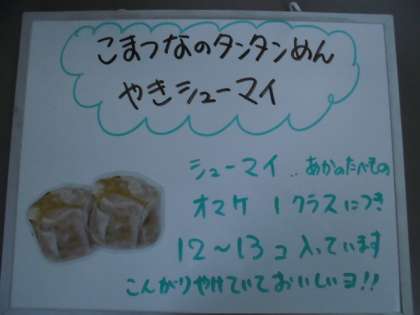 こまつなのタンタンめん
やきシューマイ
シューマイ‥あかのたべもの
オマケ 1クラスにつき
12〜13コ入っています
こんがりやけていておいしいヨ!!